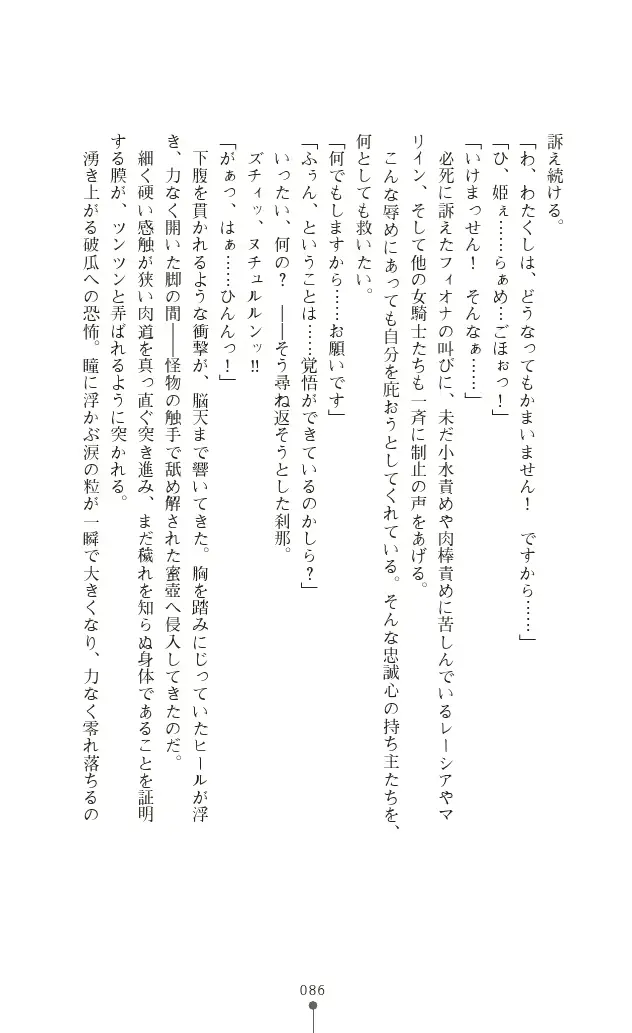 訴え続ける。
「わ、わたくしは、どうなってもかまいません！　ですから……」
「ひ、姫ぇ……らぁめ…ごほぉっ！」
「いけまっせん！　そんなぁ……」
　必死に訴えたフィオナの叫びに、未だ小水責めや肉棒責めに苦しんでいるレーシアやマ
リイン、そして他の女騎士たちも一斉に制止の声をあげる。
　こんな辱めにあっても自分を庇おうとしてくれている。そんな忠誠心の持ち主たちを、
何としても救いたい。
「何でもしますから……お願いです」
「ふぅん、ということは……覚悟ができているのかしら？」
　いったい、何の？　――そう尋ね返そうとした刹那。
　ズチィッ、ヌチュルルンッ!!
「がぁっ、はぁ……ひんんっ！」
　下腹を貫かれるような衝撃が、脳天まで響いてきた。胸を踏みにじっていたヒールが浮
き、力なく開いた脚の間――怪物の触手で舐め解された蜜壺へ侵入してきたのだ。
　細く硬い感触が狭い肉道を真っ直ぐ突き進み、まだ穢れを知らぬ身体であることを証明
する膜が、ツンツンと弄ばれるように突かれる。
　湧き上がる破瓜への恐怖。瞳に浮かぶ涙の粒が一瞬で大きくなり、力なく零れ落ちるの
086